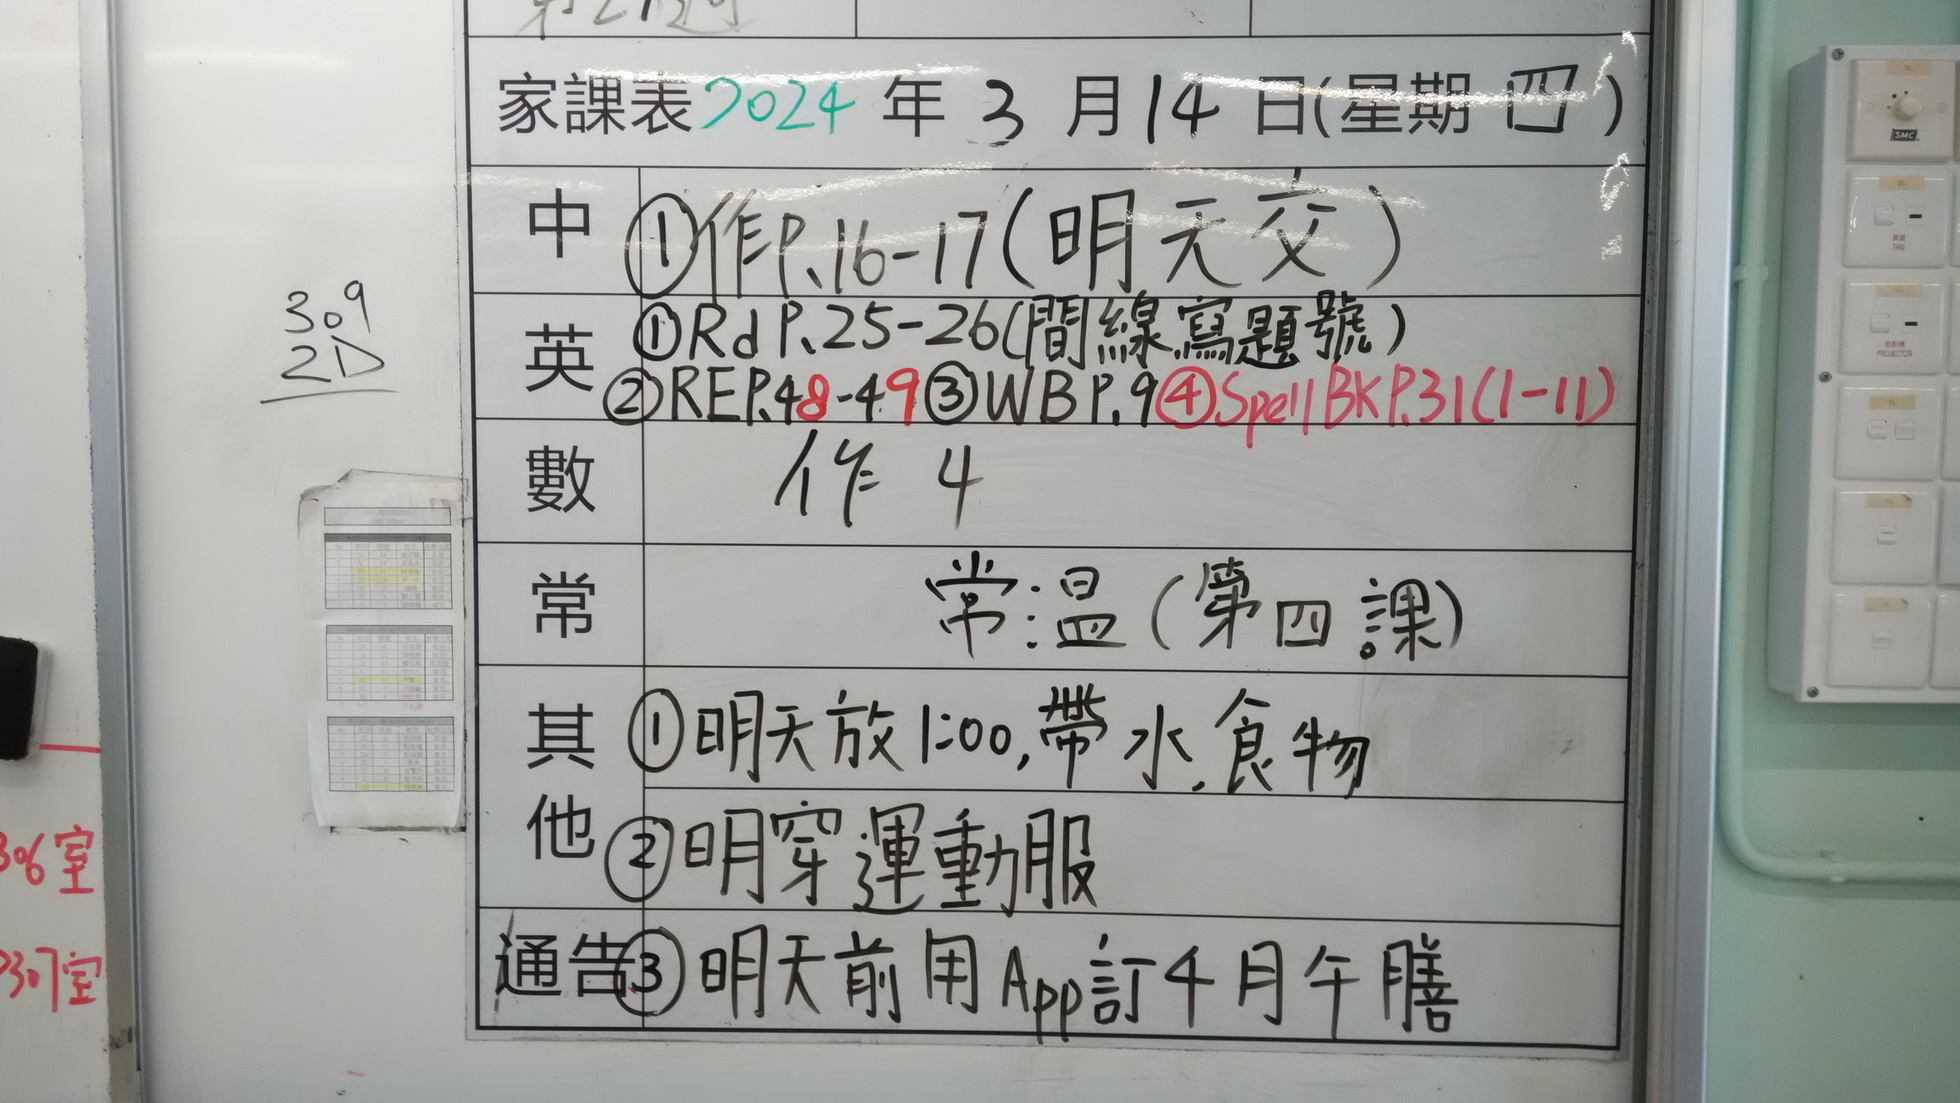 家課表2024年3月14日(星期四)
中
①作P.16-17(明天交)
英
①Rd P.25-26(間線寫題號)
②REP.48-49③WB P.9④Spell BK P.31(1-11)
數
作 4
常
常:温(第四課)
其他
①明天放1:00,帶水,食物
②明穿運動服
通告
③明天前用App訂4月午膳
309
2D
306室
307室
SMC
FAN
PROJECTOR